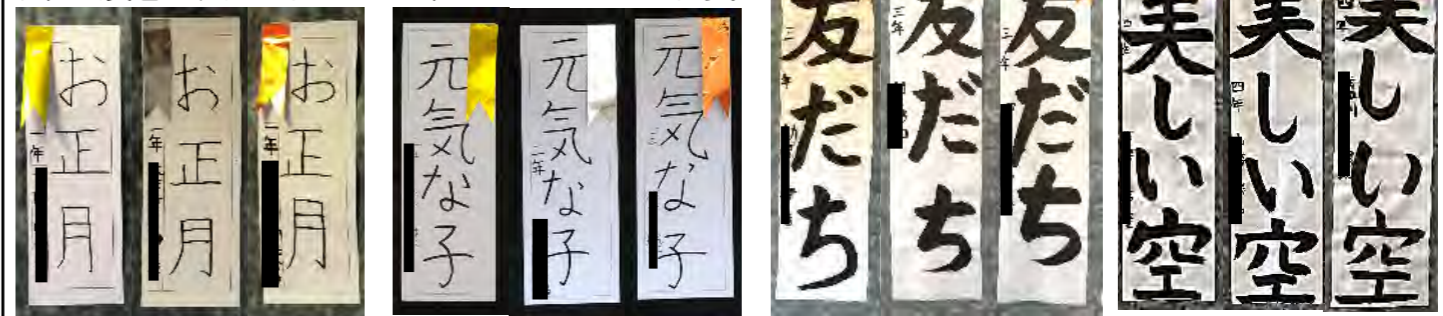 お正月
一年
お正月
一年
お正月
一年
元気な子
元気な子
二年
元気な子
友だち
三年
友だち
三年
友だち
三年
美しい空
美しい空
四年
美しい空
四年